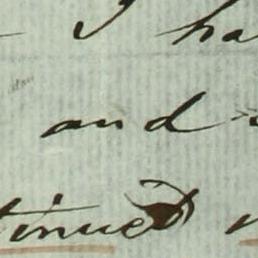 I ha
and
tinued